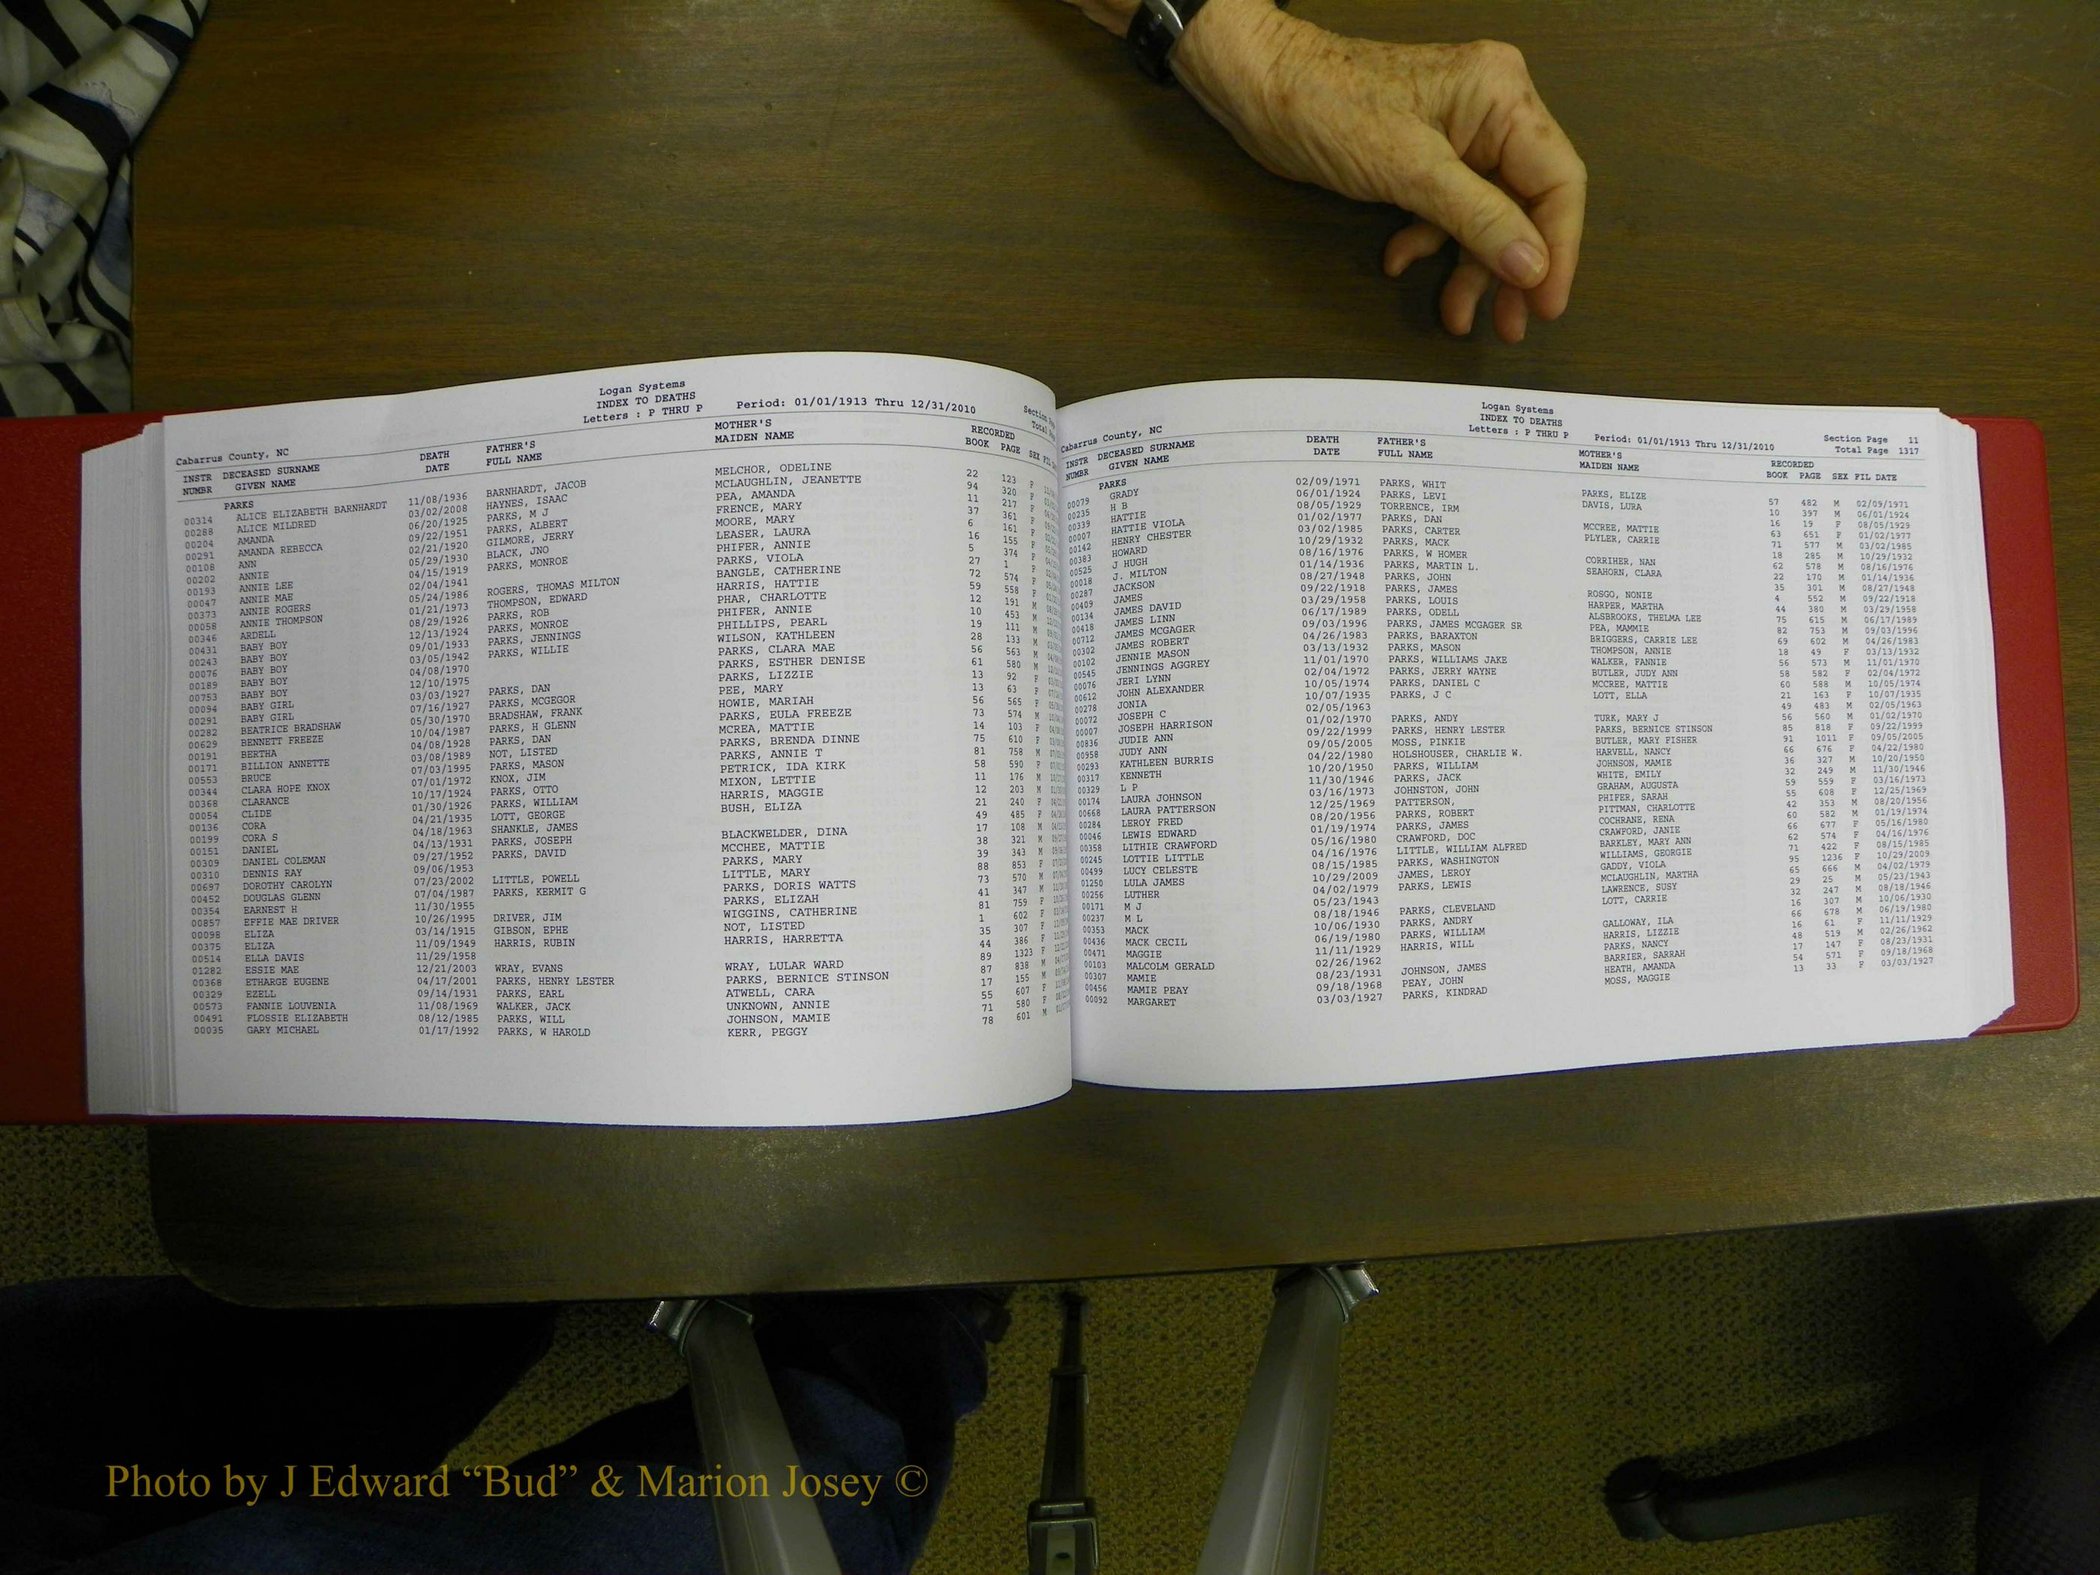 Logan Systems
INDEX TO DEATHS
Letters : P THRU P Period: 01/01/1913 Thru 12/31/2010
Cabarrus County, NC
INSTR DECEASED SURNAME DEATH FATHER'S MOTHER'S RECORDED
NUMBR GIVEN NAME DATE FULL NAME MAIDEN NAME BOOK PAGE SEX FIL
PARKS
00314 ALICE ELIZABETH BARNHARDT 11/08/1936 BARNHARDT, JACOB MELCHOR, ODELINE 22 123 F
00288 ALICE MILDRED 03/02/2008 HAYNES, ISAAC MCLAUGHLIN, JEANETTE 94 320 F
00204 AMANDA 06/20/1925 PARKS, M J PEA, AMANDA 11 217 F
00291 AMANDA REBECCA 09/22/1951 PARKS, ALBERT FRENCE, MARY 37 361 F
00108 ANN 02/21/1920 GILMORE, JERRY MOORE, MARY 6 161 F
00202 ANNIE 05/29/1930 BLACK, JNO LEASER, LAURA 16 155 F
00193 ANNIE LEE 04/15/1919 PARKS, MONROE PHIFER, ANNIE 5 374 F
00047 ANNIE MAE 02/04/1941 PARKS, VIOLA 27 1 F
00373 ANNIE ROGERS 05/24/1986 ROGERS, THOMAS MILTON BANGLE, CATHERINE 72 574 F
00058 ANNIE THOMPSON 01/21/1973 THOMPSON, EDWARD HARRIS, HATTIE 59 558 F
00346 ARDELL 08/29/1926 PARKS, ROB PHAR, CHARLOTTE 12 191 M
00431 BABY BOY 12/13/1924 PARKS, MONROE PHIFER, ANNIE 10 453 M
00243 BABY BOY 09/01/1933 PARKS, JENNINGS PHILLIPS, PEARL 19 111 M
00076 BABY BOY 03/05/1942 PARKS, WILLIE WILSON, KATHLEEN 28 133 M
00189 BABY BOY 04/08/1970 PARKS, CLARA MAE 56 563 M
00753 BABY BOY 12/10/1975 PARKS, ESTHER DENISE 61 580 M
00094 BABY GIRL 03/03/1927 PARKS, DAN PARKS, LIZZIE 13 92 F
00291 BABY GIRL 07/16/1927 PARKS, MCGEGOR PEE, MARY 13 63 F
00282 BEATRICE BRADSHAW 05/30/1970 BRADSHAW, FRANK HOWIE, MARIAH 56 565 F
00629 BENNETT FREEZE 10/04/1987 PARKS, H GLENN PARKS, EULA FREEZE 73 574 M
00191 BERTHA 04/08/1928 PARKS, DAN MCREA, MATTIE 14 103 F
00171 BILLION ANNETTE 03/08/1989 NOT, LISTED PARKS, BRENDA DINNE 75 610 F
00553 BRUCE 07/03/1995 PARKS, MASON PARKS, ANNIE T 81 758 M
00344 CLARA HOPE KNOX 07/01/1972 KNOX, JIM PETRICK, IDA KIRK 58 590 F
00368 CLARANCE 10/17/1924 PARKS, OTTO MIXON, LETTIE 11 176 M
00054 CLIDE 01/30/1926 PARKS, WILLIAM HARRIS, MAGGIE 12 203 M
00136 CORA 04/21/1935 LOTT, GEORGE BUSH, ELIZA 21 240 F
00199 CORA S 04/18/1963 SHANKLE, JAMES 49 485 F
00151 DANIEL 04/13/1931 PARKS, JOSEPH BLACKWELDER, DINA 17 108 M
00309 DANIEL COLEMAN 09/27/1952 PARKS, DAVID MCCHEE, MATTIE 38 321 M
00310 DENNIS RAY 09/06/1953 PARKS, MARY 39 343 M
00697 DOROTHY CAROLYN 07/23/2002 LITTLE, POWELL LITTLE, MARY 88 853 F
00452 DOUGLAS GLENN 07/04/1987 PARKS, KERMIT G PARKS, DORIS WATTS 73 570 M
00354 EARNEST H 11/30/1955 PARKS, ELIZAH 41 347 M
00857 EFFIE MAE DRIVER 10/26/1995 DRIVER, JIM WIGGINS, CATHERINE 81 759 F
00098 ELIZA 03/14/1915 GIBSON, EPHE NOT, LISTED 1 602 F
00375 ELIZA 11/09/1949 HARRIS, RUBIN HARRIS, HARRETTA 35 307 F
00514 ELLA DAVIS 11/29/1958 44 386 F
01282 ESSIE MAE 12/21/2003 WRAY, EVANS WRAY, LULAR WARD 89 1323 F
00368 ETHARGE EUGENE 04/17/2001 PARKS, HENRY LESTER PARKS, BERNICE STINSON 87 838 M
00329 EZELL 09/14/1931 PARKS, EARL ATWELL, CARA 17 155 M
00573 FANNIE LOUVENIA 11/08/1969 WALKER, JACK UNKNOWN, ANNIE 55 607 F
00491 FLOSSIE ELIZABETH 08/12/1985 PARKS, WILL JOHNSON, MAMIE 71 580 F
00035 GARY MICHAEL 01/17/1992 PARKS, W HAROLD KERR, PEGGY 78 601 M
Logan Systems
INDEX TO DEATHS
Letters : P THRU P Period: 01/01/1913 Thru 12/31/2010
Section Page 11
Total Page 1317
Cabarrus County, NC
INSTR DECEASED SURNAME DEATH FATHER'S MOTHER'S RECORDED
NUMBR GIVEN NAME DATE FULL NAME MAIDEN NAME BOOK PAGE SEX FIL DATE
PARKS
00079 GRADY 02/09/1971 PARKS, WHIT PARKS, ELIZE 57 482 M 02/09/1971
00235 H B 06/01/1924 PARKS, LEVI DAVIS, LURA 10 397 M 06/01/1924
00339 HATTIE 08/05/1929 TORRENCE, IRM 16 19 F 08/05/1929
00007 HATTIE VIOLA 01/02/1977 PARKS, DAN MCCREE, MATTIE 63 651 F 01/02/1977
00142 HENRY CHESTER 03/02/1985 PARKS, CARTER PLYLER, CARRIE 71 577 M 03/02/1985
00383 HOWARD 10/29/1932 PARKS, MACK 18 285 M 10/29/1932
00525 J HUGH 08/16/1976 PARKS, W HOMER CORRIHER, NAN 62 578 M 08/16/1976
00018 J. MILTON 01/14/1936 PARKS, MARTIN L. SEAHORN, CLARA 22 170 M 01/14/1936
00287 JACKSON 08/27/1948 PARKS, JOHN 35 301 M 08/27/1948
00409 JAMES 09/22/1918 PARKS, JAMES ROSGO, NONIE 4 552 M 09/22/1918
00134 JAMES DAVID 03/29/1958 PARKS, LOUIS HARPER, MARTHA 44 380 M 03/29/1958
00418 JAMES LINN 06/17/1989 PARKS, ODELL ALSBROOKS, THELMA LEE 75 615 M 06/17/1989
00712 JAMES MCGAGER 09/03/1996 PARKS, JAMES MCGAGER SR PEA, MAMMIE 82 753 M 09/03/1996
00302 JAMES ROBERT 04/26/1983 PARKS, BARAXTON BRIGGERS, CARRIE LEE 69 602 M 04/26/1983
00102 JENNIE MASON 03/13/1932 PARKS, MASON THOMPSON, ANNIE 18 49 F 03/13/1932
00545 JENNINGS AGGREY 11/01/1970 PARKS, WILLIAMS JAKE WALKER, FANNIE 56 573 M 11/01/1970
00076 JERI LYNN 02/04/1972 PARKS, JERRY WAYNE BUTLER, JUDY ANN 58 582 F 02/04/1972
00612 JOHN ALEXANDER 10/05/1974 PARKS, DANIEL C MCCREE, MATTIE 60 588 M 10/05/1974
00278 JONIA 10/07/1935 PARKS, J C LOTT, ELLA 21 163 F 10/07/1935
00072 JOSEPH C 02/05/1963 49 483 M 02/05/1963
00007 JOSEPH HARRISON 01/02/1970 PARKS, ANDY TURK, MARY J 56 560 M 01/02/1970
00836 JUDIE ANN 09/22/1999 PARKS, HENRY LESTER PARKS, BERNICE STINSON 85 818 F 09/22/1999
00958 JUDY ANN 09/05/2005 MOSS, PINKIE BUTLER, MARY FISHER 91 1011 F 09/05/2005
00293 KATHLEEN BURRIS 04/22/1980 HOLSHOUSER, CHARLIE W. HARVELL, NANCY 66 676 F 04/22/1980
00317 KENNETH 10/20/1950 PARKS, WILLIAM JOHNSON, MAMIE 36 327 M 10/20/1950
00329 L P 11/30/1946 PARKS, JACK WHITE, EMILY 32 249 M 11/30/1946
00174 LAURA JOHNSON 03/16/1973 JOHNSTON, JOHN GRAHAM, AUGUSTA 59 559 F 03/16/1973
00668 LAURA PATTERSON 12/25/1969 PATTERSON, PHIFER, SARAH 55 608 F 12/25/1969
00284 LEROY FRED 08/20/1956 PARKS, ROBERT PITTMAN, CHARLOTTE 42 353 M 08/20/1956
00046 LEWIS EDWARD 01/19/1974 PARKS, JAMES COCHRANE, RENA 60 582 M 01/19/1974
00358 LITHIE CRAWFORD 05/16/1980 CRAWFORD, DOC CRAWFORD, JANIE 66 677 F 05/16/1980
00245 LOTTIE LITTLE 04/16/1976 LITTLE, WILLIAM ALFRED BARKLEY, MARY ANN 62 574 F 04/16/1976
00499 LUCY CELESTE 08/15/1985 PARKS, WASHINGTON WILLIAMS, GEORGIE 71 422 F 08/15/1985
01250 LULA JAMES 10/29/2009 JAMES, LEROY GADDY, VIOLA 95 1236 F 10/29/2009
00256 LUTHER 04/02/1979 PARKS, LEWIS MCLAUGHLIN, MARTHA 65 666 M 04/02/1979
00171 M J 05/23/1943 LAWRENCE, SUSY 29 25 M 05/23/1943
00237 M L 08/18/1946 PARKS, CLEVELAND LOTT, CARRIE 32 247 M 08/18/1946
00353 MACK 10/06/1930 PARKS, ANDRY 16 307 M 10/06/1930
00436 MACK CECIL 06/19/1980 PARKS, WILLIAM GALLOWAY, ILA 66 678 M 06/19/1980
00471 MAGGIE 11/11/1929 HARRIS, WILL HARRIS, LIZZIE 16 61 F 11/11/1929
00103 MALCOLM GERALD 02/26/1962 PARKS, NANCY 48 519 M 02/26/1962
00307 MAMIE 08/23/1931 JOHNSON, JAMES BARRIER, SARRAH 17 147 F 08/23/1931
00456 MAMIE PEAY 09/18/1968 PEAY, JOHN HEATH, AMANDA 54 571 F 09/18/1968
00092 MARGARET 03/03/1927 PARKS, KINDRAD MOSS, MAGGIE 13 33 F 03/03/1927
Photo by J Edward “Bud” & Marion Josey ©